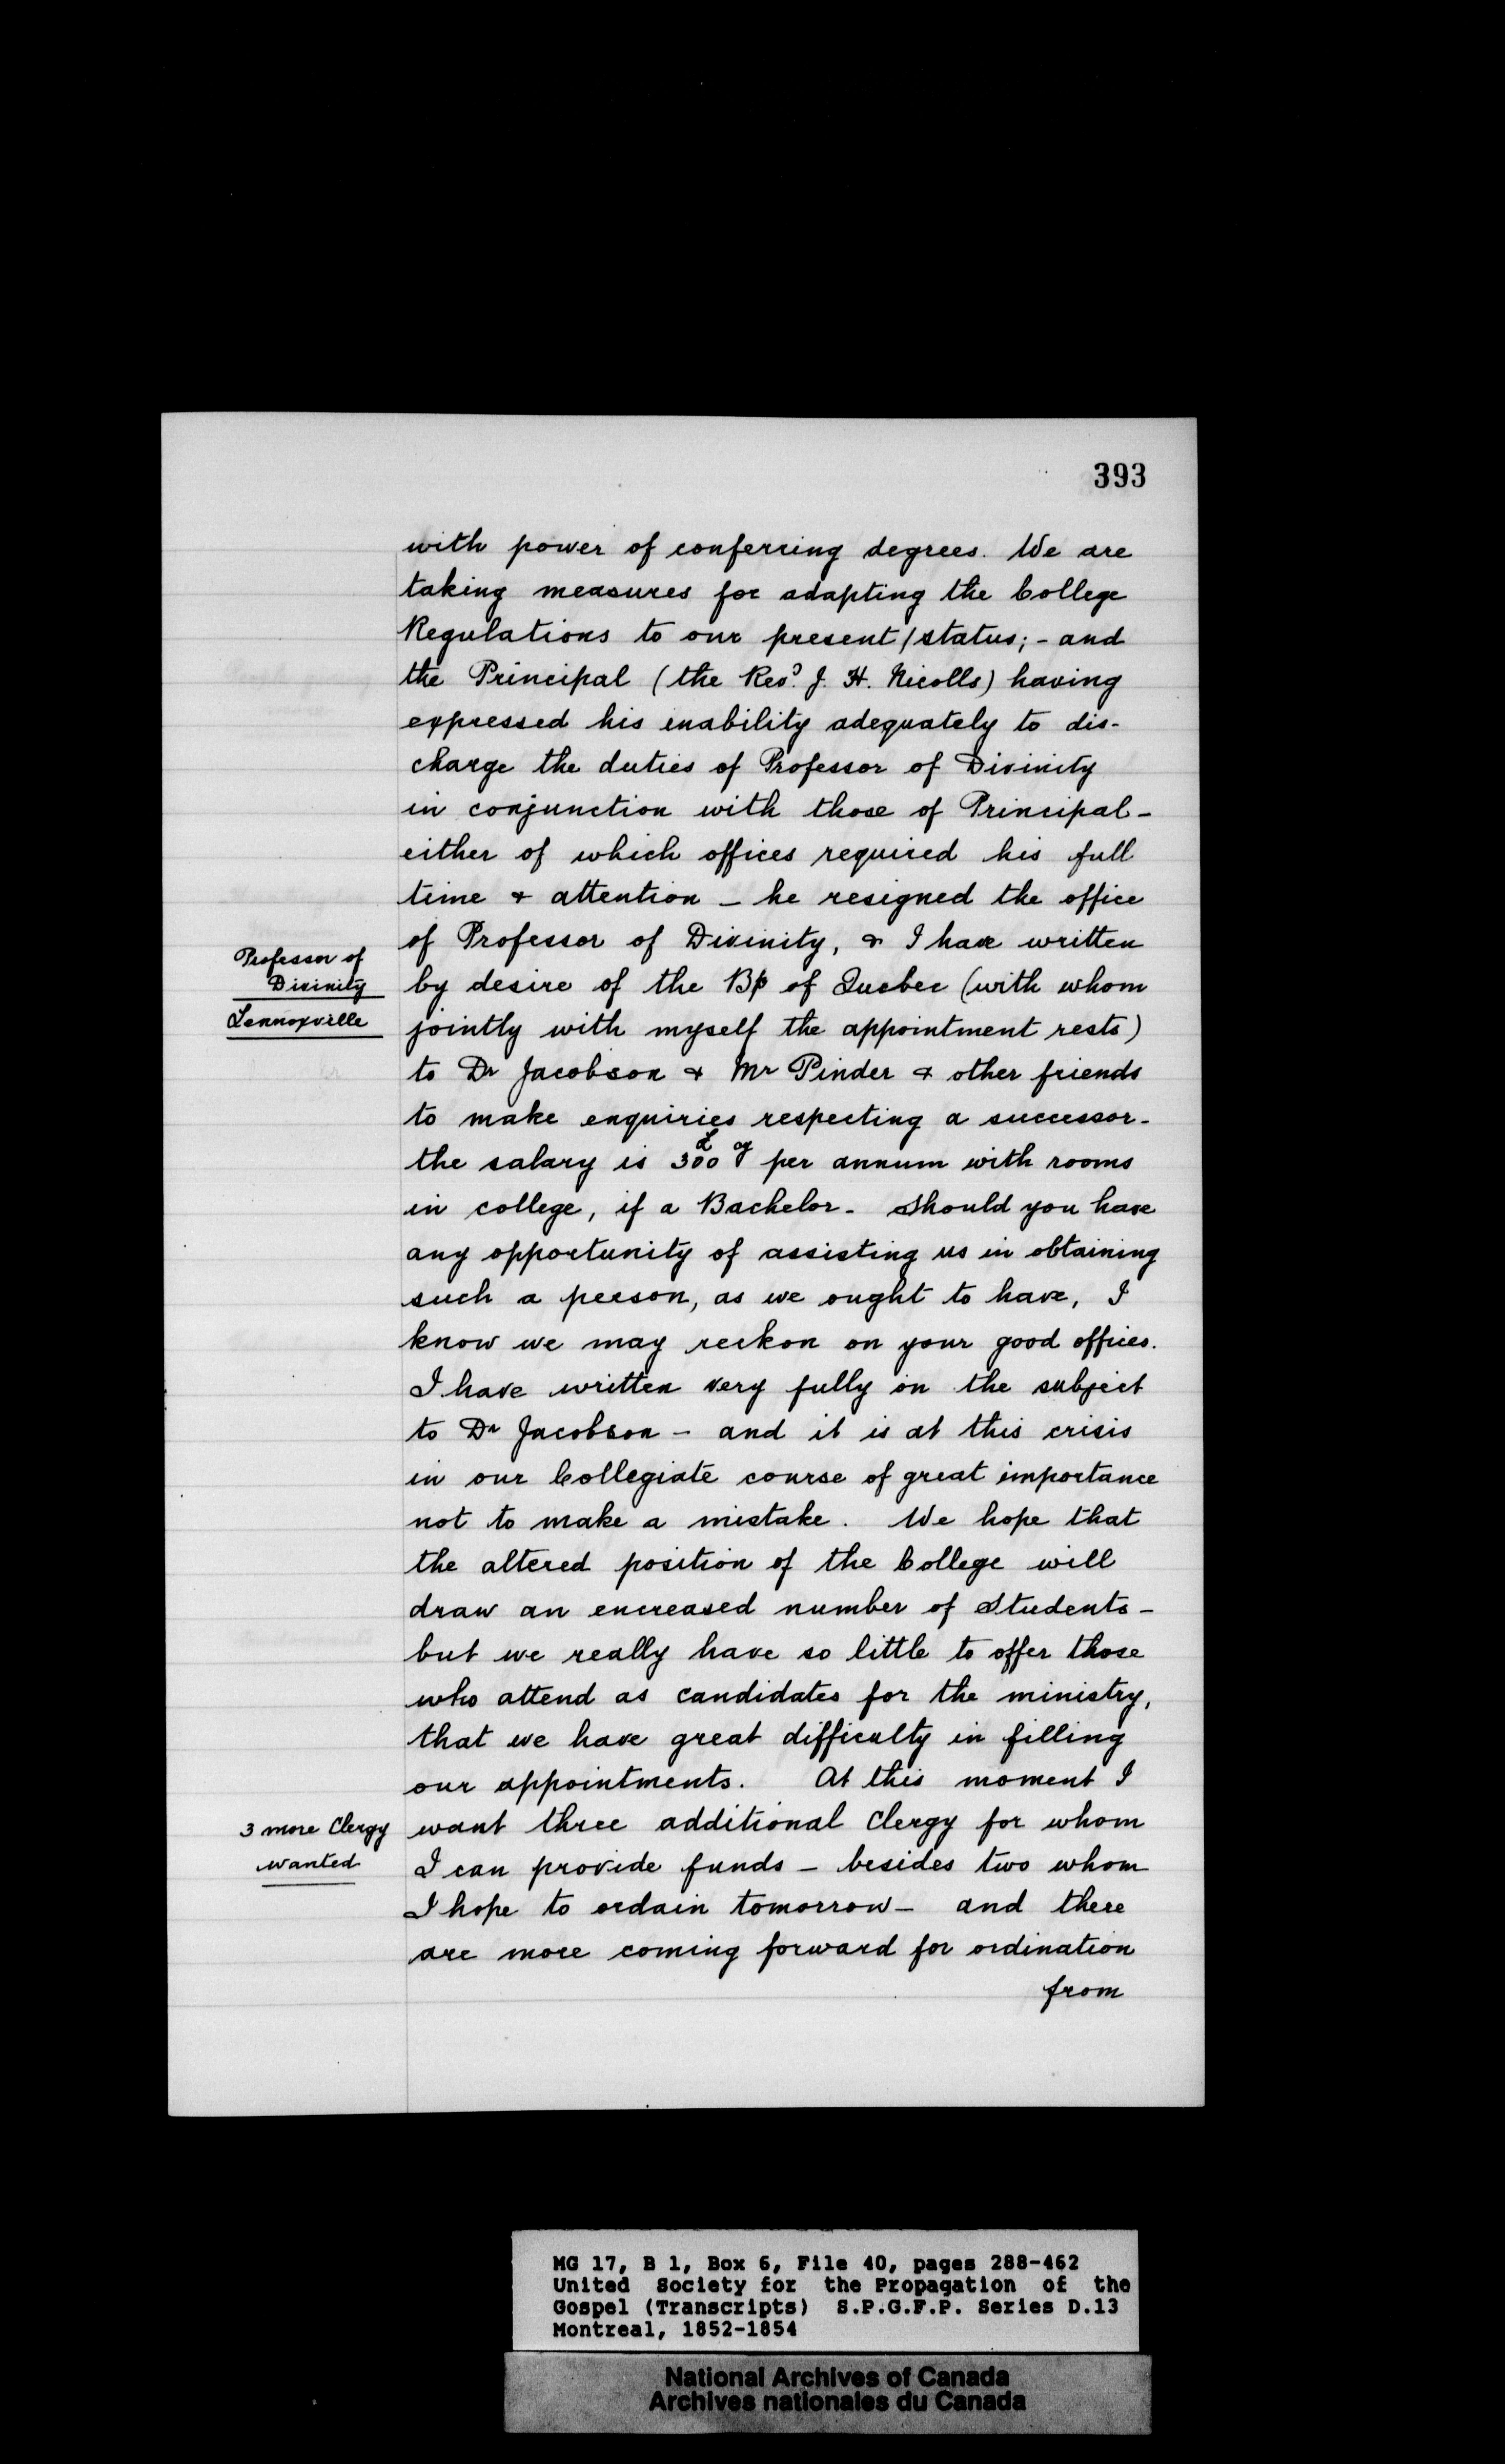 393
with power of conferring degrees. We are
taking measures for adapting the College
Regulations to our present/status; - and
the Principal (the Revd. J. H. Nicolls) having
expressed his inability adequately to dis-
charge the duties of Professor of Divinity
in conjunction with those of Principal -
either of which offices required his full
time & attention - he resigned the office
of Professor of Divinity, & I have written
Professor of
Divinity
Lennoxville
by desire of the Bp of Quebec (with whom
jointly with myself the appointment rests)
to Dr Jacobson & Mr Pinder & other friends
to make enquiries respecting a successor -
the salary is 300£ cy per annum with rooms
in college, if a Bachelor - Should you have
any opportunity of assisting us in obtaining
such a person, as we ought to have, I
know we may reckon on your good offices.
I have written very fully on the subject
to Dr Jacobson - and it is at this crisis
in our Collegiate course of great importance
not to make a mistake. We hope that
the altered position of the College will
draw an encreased number of Students -
but we really have so little to offer those
who attend as candidates for the ministry,
that we have great difficulty in filling
our appointments. At this moment I
3 more Clergy
wanted
want three additional Clergy for whom
I can provide funds - besides two whom
I hope to ordain tomorrow - and there
are more coming forward for ordination
from
MG 17, B 1, Box 6, File 40, pages 288-462
United Society for the Propagation of the
Gospel (Transcripts) S.P.G.F.P. Series D.13
Montreal, 1852-1854
National Archives of Canada
Archives nationales du Canada